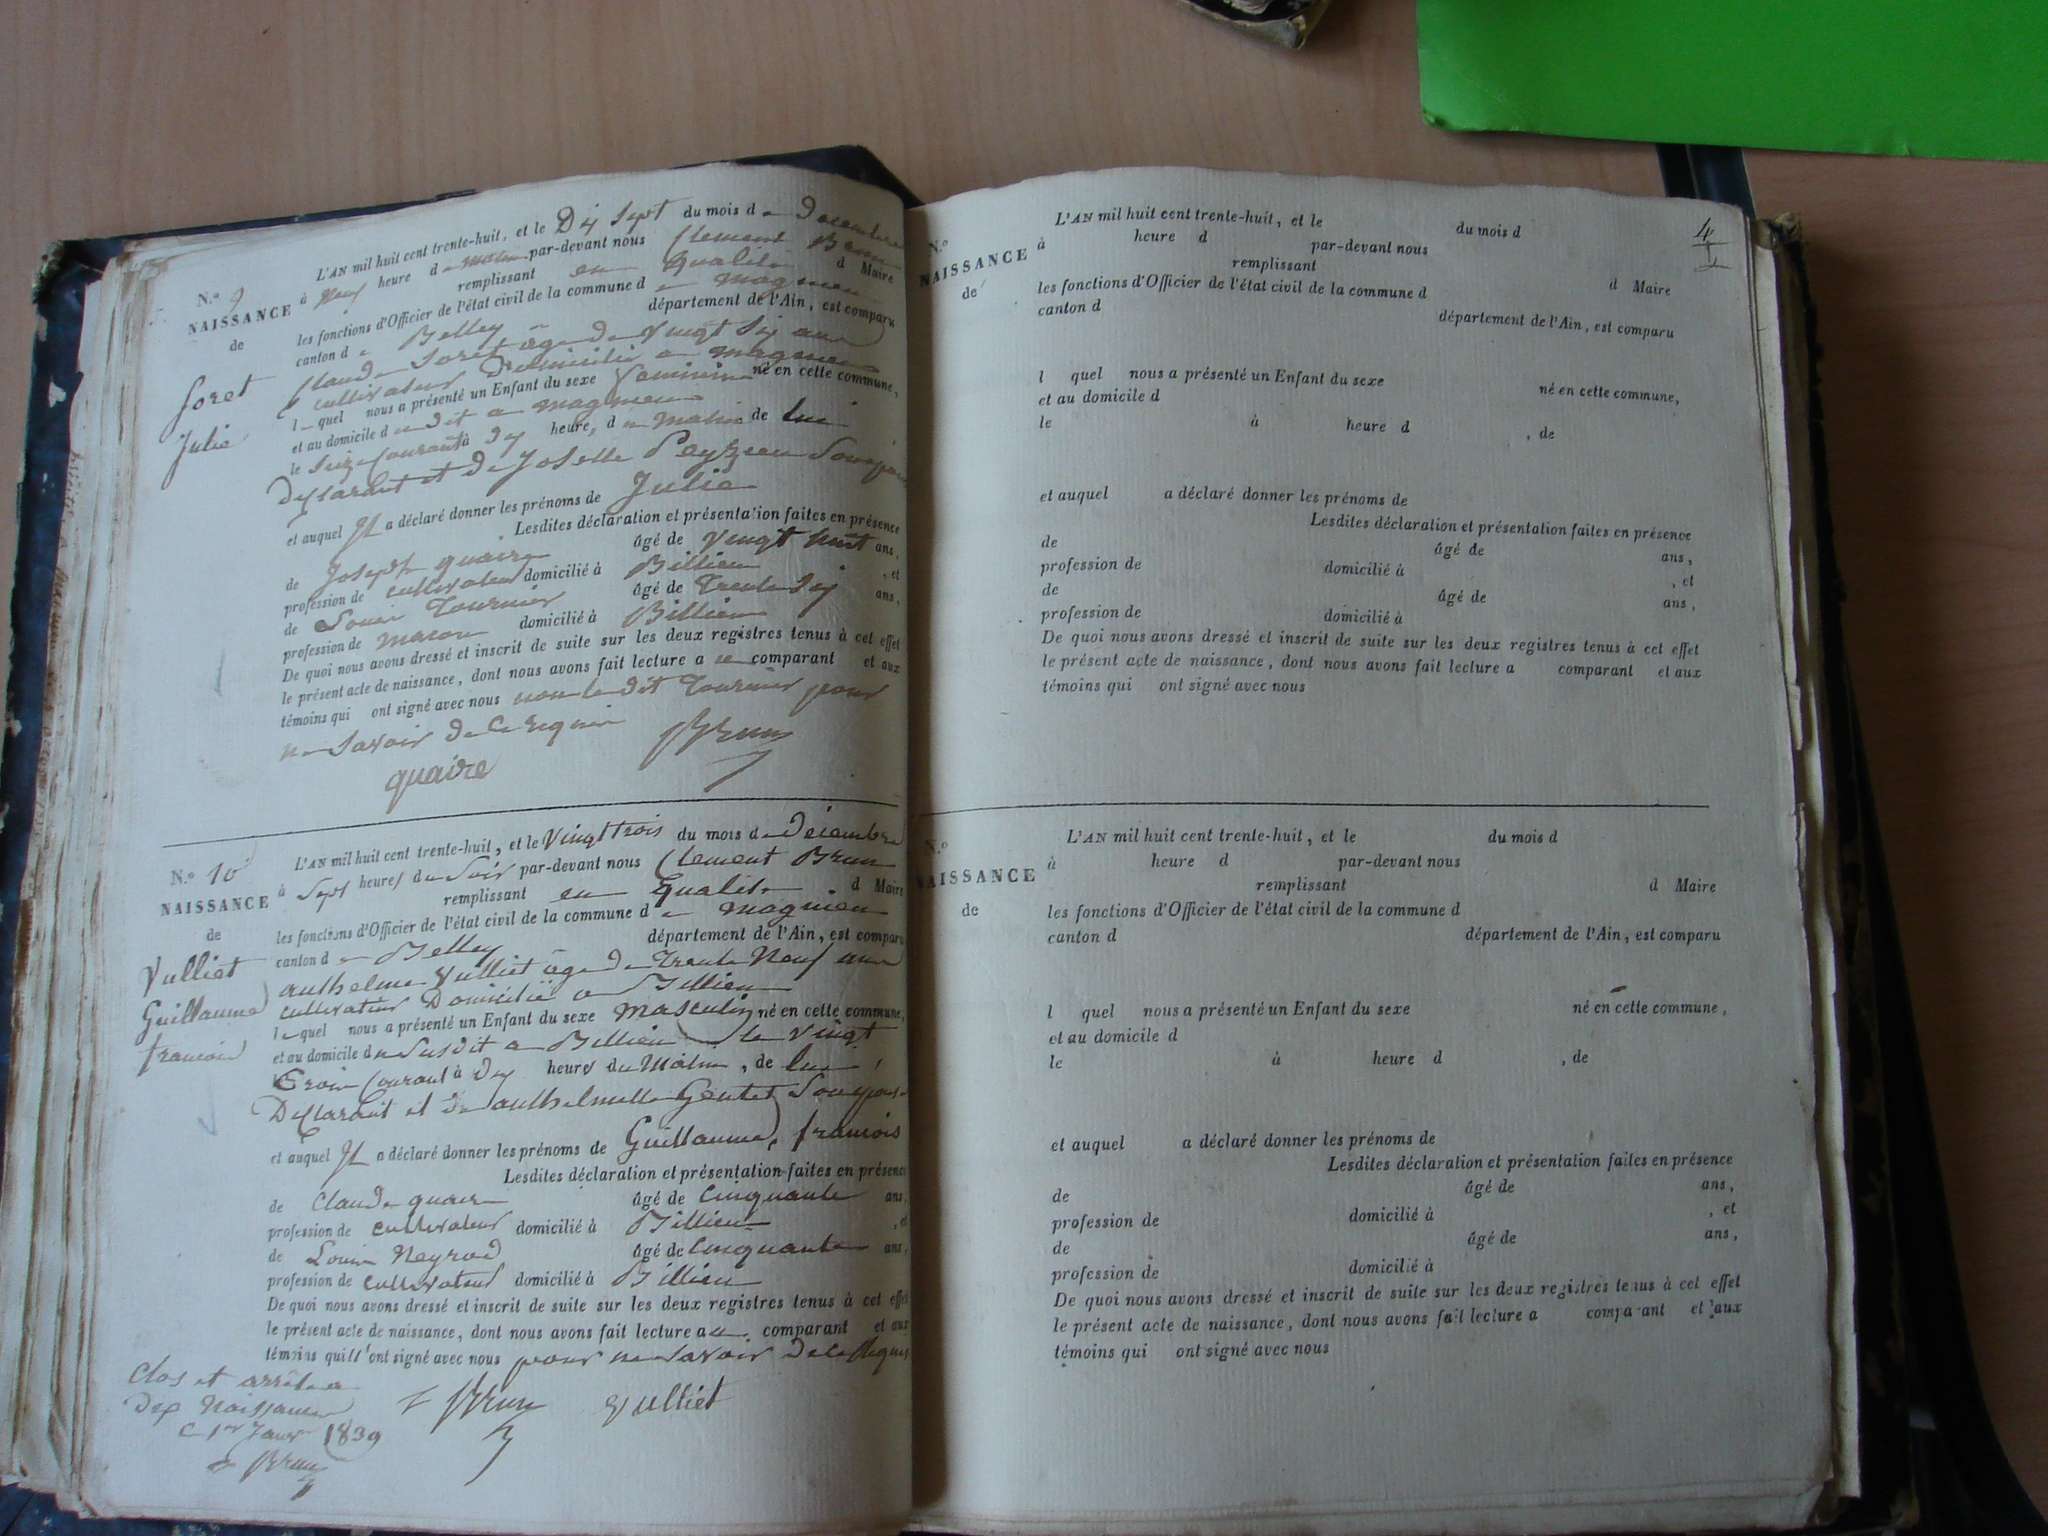 L'AN mil huit cent trente-huit, et le Dix Sept du mois de Decembre
N.o 9 à Neuf heure de matin par-devant nous Clement Brun
NAISSANCE remplissant en qualité d Maire
de les fonctions d'Officier de l'état civil de la commune de magnieu
canton de Belley département de l'Ain, est comparu
Claude Soret âge de vingt Six ans
Soret cultivateur Domicilié a magnieu
l e quel nous a présenté un Enfant du sexe feminin né en cette commune,
Julie et au domicile du dit a magnieu
le Seize Courant à dix heure, du Matin de lui
Declarant et de Josette Peyzieu Son épouse
et auquel Il a déclaré donner les prénoms de Julie
Lesdites déclaration et présentation faites en présence
de Joseph quaire âgé de vingt huit ans,
profession de cultivateur domicilié à Billieu , et
de Louis Tournier âgé de Trente Six ans,
profession de macon domicilié à Billieu
De quoi nous avons dressé et inscrit de suite sur les deux registres tenus à cet effet
le présent acte de naissance, dont nous avons fait lecture a u comparant et aux
témoins qui ont signé avec nous non le dit Tournier pour
ne Savoir de Ce Requis
Brun
quaire
L'AN mil huit cent trente-huit, et le vingt trois du mois de Décembre
N.o 10 à Sept heures du Soir par-devant nous Clement Brun
NAISSANCE remplissant en qualité d Maire
de les fonctions d'Officier de l'état civil de la commune de magnieu
canton de Belley département de l'Ain, est comparu
Vulliet anthelme Vulliet âge de Trente Neuf ans
Guillaume cultivateur Domicilié a Billieu
l e quel nous a présenté un Enfant du sexe masculin né en cette commune,
francois et au domicile du Susdit a Billieu le vingt
Trois Courant à dix heures du Matin, de lui
Declarant et de anthelmette Gentet Son épouse
et auquel Il a déclaré donner les prénoms de Guillaume, francois
Lesdites déclaration et présentation faites en présence
de Claude quaire âgé de Cinquante ans,
profession de cultivateur domicilié à Billieu , et
de Louis Neyrod âgé de Cinquante ans,
profession de cultivateur domicilié à Billieu
De quoi nous avons dressé et inscrit de suite sur les deux registres tenus à cet effet
le présent acte de naissance, dont nous avons fait lecture au comparant et aux
témoins qui n'ont signé avec nous pour ne Savoir de Ce Requis
Clos et arrêté a Brun Vulliet
Dix Naissances
Ce 1er Janv 1839
Brun
4
L'AN mil huit cent trente-huit, et le du mois d
N.o à heure d par-devant nous
NAISSANCE remplissant d Maire
de les fonctions d'Officier de l'état civil de la commune d
canton d département de l'Ain, est comparu
l quel nous a présenté un Enfant du sexe né en cette commune,
et au domicile d
le à heure d , de
et auquel a déclaré donner les prénoms de
Lesdites déclaration et présentation faites en présence
de âgé de ans,
profession de domicilié à , et
de âgé de ans,
profession de domicilié à
De quoi nous avons dressé et inscrit de suite sur les deux registres tenus à cet effet
le présent acte de naissance, dont nous avons fait lecture a comparant et aux
témoins qui ont signé avec nous
L'AN mil huit cent trente-huit, et le du mois d
N.o à heure d par-devant nous
NAISSANCE remplissant d Maire
de les fonctions d'Officier de l'état civil de la commune d
canton d département de l'Ain, est comparu
l quel nous a présenté un Enfant du sexe né en cette commune,
et au domicile d
le à heure d , de
et auquel a déclaré donner les prénoms de
Lesdites déclaration et présentation faites en présence
de âgé de ans,
profession de domicilié à , et
de âgé de ans,
profession de domicilié à
De quoi nous avons dressé et inscrit de suite sur les deux registres tenus à cet effet
le présent acte de naissance, dont nous avons fait lecture a comparant et aux
témoins qui ont signé avec nous